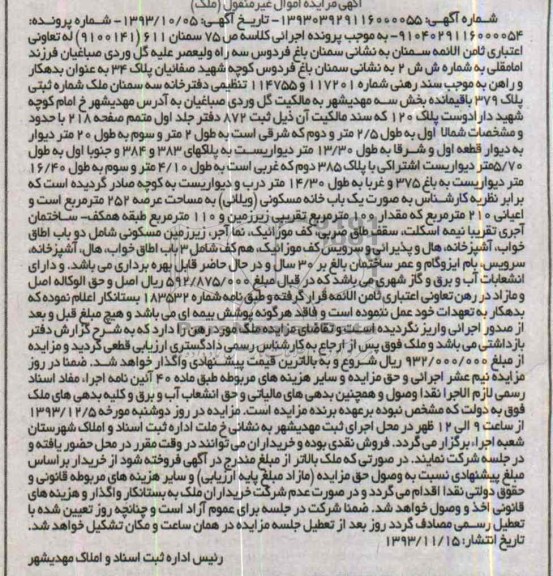 آگهی مزایده اموال غیرمنقول (ملک)
شماره آگهی: ۱۳۹۳۰۳۹۲۹۱۱۶۰۰۰۰۵۵- تاریخ آگهی: ۱۳۹۳/۱۰/۰۵- شماره پرونده:
۹۱۰۴۰۲۹۱۱۶۰۰۰۰۵۴- به موجب پرونده اجرائی کلاسه ص ۷۵ سمنان ۶۱۱ (۹۱۰۰۱۴۱) له تعاونی
اعتباری ثامن الائمه سمنان به نشانی سمنان باغ فردوس سه راه ولیعصر علیه گل وردی صباغیان فرزند
امامقلی به شماره ش ش ۲ به نشانی سمنان باغ فردوس کوچه شهید صفائیان پلاک ۳۴ به عنوان بدهکار
و راهن به موجب سند رهنی شماره ۱۱۷۲۰۱ و ۱۱۴۷۵۵ تنظیمی دفترخانه سه سمنان ملک شماره ثبتی
پلاک ۳۷۹ باقیمانده بخش سه مهدیشهر به مالکیت گل وردی صباغیان به آدرس مهدیشهر خ امام کوچه
شهید دارادوست پلاک ۱۲۰ که سند مالکیت آن ذیل ثبت ۸۷۲ دفتر جلد اول متمم صفحه ۲۱۸ با حدود
و مشخصات شمالا اول به طول ۲/۵ متر و دوم که شرقی است به طول ۲ متر و سوم به طول ۲۰ متر دیوار
به دیوار قطعه اول و شرقا به طول ۱۳/۳۰ متر دیواریست به پلاکهای ۳۸۳ و ۳۸۴ و جنوبا اول به طول
۵/۷۰ متر دیواریست اشتراکی با پلاک ۳۸۵ دوم که غربی است به طول ۴/۱۰ متر و سوم به طول ۱۶/۴۰
متر دیواریست به باغ ۳۷۵ و غربا به طول ۱۴/۳۰ متر درب و دیواریست به کوچه صادر گردیده است که
برابر نظریه کارشناس به صورت یک باب خانه مسکونی (ویلائی) به مساحت عرصه ۲۵۲ مترمربع است و
اعیانی ۲۱۰ مترمربع که مقدار ۱۰۰ مترمربع تقریبی زیرزمین و ۱۱۰ مترمربع طبقه همکف- ساختمان
آجری تقریبا نیمه اسکلت، سقف طاق ضربی، کف موزائیک، نما آجر، زیرزمین مسکونی شامل دو باب اطاق
خواب، آشپزخانه، هال و پذیرائی و سرویس کف موزائیک، هم کف شامل ۳ باب اطاق خواب، هال، آشپزخانه،
سرویس، بام ایزوگام و عمر ساختمان بالغ بر ۳۰ سال و در حال حاضر قابل بهره برداری می باشد. و دارای
انشعابات آب و برق و گاز شهری می باشد که در قبال مبلغ ۵۹۲/۸۷۵/۰۰۰ ریال اصل و حق الوکاله اصل
و مازاد در رهن تعاونی اعتباری ثامن الائمه قرار گرفته و طبق نامه شماره ۱۸۳۵۳۲ بستانکار اعلام نموده که
بدهکار به تعهدات خود عمل ننموده است و فاقد هرگونه پوشش بیمه ای می باشد و هیچ مبلغ قبل و بعد
از صدور اجرائی واریز نگردیده است و تقاضای مزایده ملک مورد رهن را دارد که به شرح گزارش دفتر
بازداشتی می باشد و ملک فوق پس از ارجاع به کارشناس رسمی دادگستری ارزیابی قطعی گردید و مزایده
از مبلغ ۹۳۲/۰۰۰/۰۰۰ ریال شروع و به بالاترین قیمت پیشنهادی واگذار خواهد شد. ضمنا در روز
مزایده نیم عشر اجرائی و حق مزایده و سایر هزینه های مربوطه طبق ماده ۴۰ آئین نامه اجرا، مفاد اسناد
رسمی لازم الاجرا نقدا وصول و همچنین بدهی های مالیاتی و حق انشعاب آب و برق و کلیه بدهی های ملک
فوق به دولت که مشخص نبوده برعهده برنده مزایده است. مزایده در روز دوشنبه مورخه ۱۳۹۳/۱۲/۵
از ساعت ۹ الی ۱۲ ظهر در محل اجرای ثبت مهدیشهر به نشانی خ ملت اداره ثبت اسناد و املاک شهرستان
شعبه اجرا، برگزار می گردد. فروش نقدی بوده و خریداران می توانند در وقت مقرر در محل حضور یافته و
در جلسه شرکت نمایند. در صورتی که ملک بالاتر از مبلغ مندرج در آگهی فروخته شود از خریدار براساس
مبلغ پیشنهادی نسبت به وصول حق مزایده (مازاد مبلغ پایه ارزیابی) و سایر هزینه های مربوطه قانونی و
حقوق دولتی نقدا اقدام می گردد و در صورت عدم شرکت خریداران ملک به بستانکار واگذار و هزینه های
قانونی اخذ و وصول خواهد شد. ضمنا شرکت در جلسه برای عموم آزاد است و چنانچه روز تعیین شده با
تعطیل رسمی مصادف گردد روز بعد از تعطیل جلسه مزایده در همان ساعت و مکان تشکیل خواهد شد.
تاریخ انتشار: ۱۳۹۳/۱۱/۱۵
رئیس اداره ثبت اسناد و املاک مهدیشهر